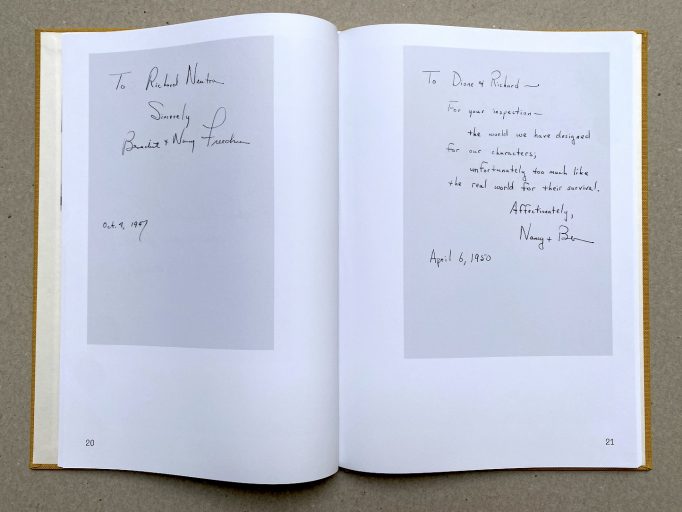 To Richard Neutra
Sincerely
Benedict & Nancy Freedman
Oct. 9, 1947
20
To Dione & Richard —
For your inspection —
the world we have designed
for our characters,
unfortunately too much like
the real world for their survival.
Affectionately,
Nancy + Ben
April 6, 1950
21